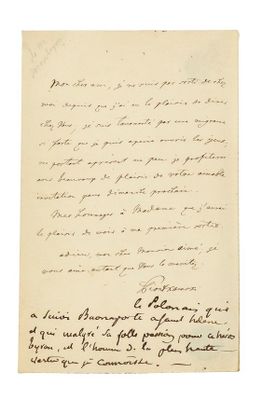 Mon cher ami, je ne suis pas sorti de chez
moi depuis que j'ai eu le plaisir de diner
chez vous, je suis tourmenté par une migraine
si forte que je puis à peine ouvrir les yeux,
me portant un peu je profiterai
avec beaucoup de plaisir de votre aimable
invitation pour dimanche prochain.
Mes hommages à Madame que j'aurai
le plaisir de voir à ma première sortie
adieu, mon cher Monsieur aimé, je
vous aime autant que vous le méritez
le Polonais qui
a suivi Buonaparte a Sainte hélène
et qui malgré sa folle passion pour ce
est l'homme de la plus haute
vertu que je connoisse.